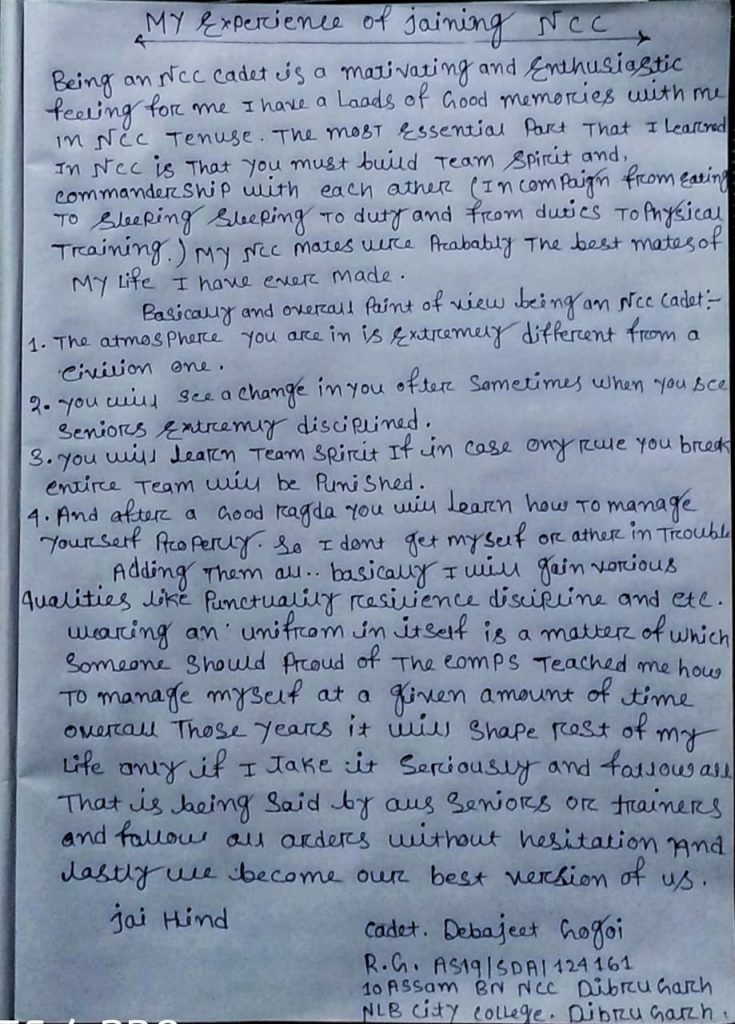 MY Experience of jaining NCC
Being an NCC cadet is a mativating and Enthusiastic
feeling for me I have a Laads of Good memories with me
in NCC Tenuse. The most Essential Part That I Learned
In NCC is That you must build Team Spirit and,
commandership with each ather (In compaign from eating
To Sleeping Sleeping To duty and from duties To Physical
Training.) My NCC mates were Prabably The best mates of
My Life I have ever made.
Basically and overall Paint of view being an NCC Cadet:-
1. The atmosphere you are in is Extremely different from a
civilion one.
2. you will see a change in you ofter Sometimes when you see
Seniors Extremly disciplined.
3. you will learn Team Spirit If in case ony rule you break
entire Team will be Punished.
4. And after a Good Ragda you will Learn how To manage
yourself Properly. So I dont get myself or ather in Trouble
Adding Them all.. basically I will gain vorious
Qualities like Punctuality resilience discipline and etc.
wearing an unifrom in itself is a matter of which
Someone Should Proud of The comps Teached me how
To manage myself at a given amount of time
overall Those years it will Shape rest of my
Life only if I Take it Seriously and fallow all
That is being Said by aus Seniors or trainers
and fallow all arders without hesitation And
lastly we become our best version of us.
jai Hind
cadet. Debajeet Gogoi
R.G. AS19/SDA/124161
10 Assam BN NCC Dibrugarh
NLB City College. Dibrugarh.